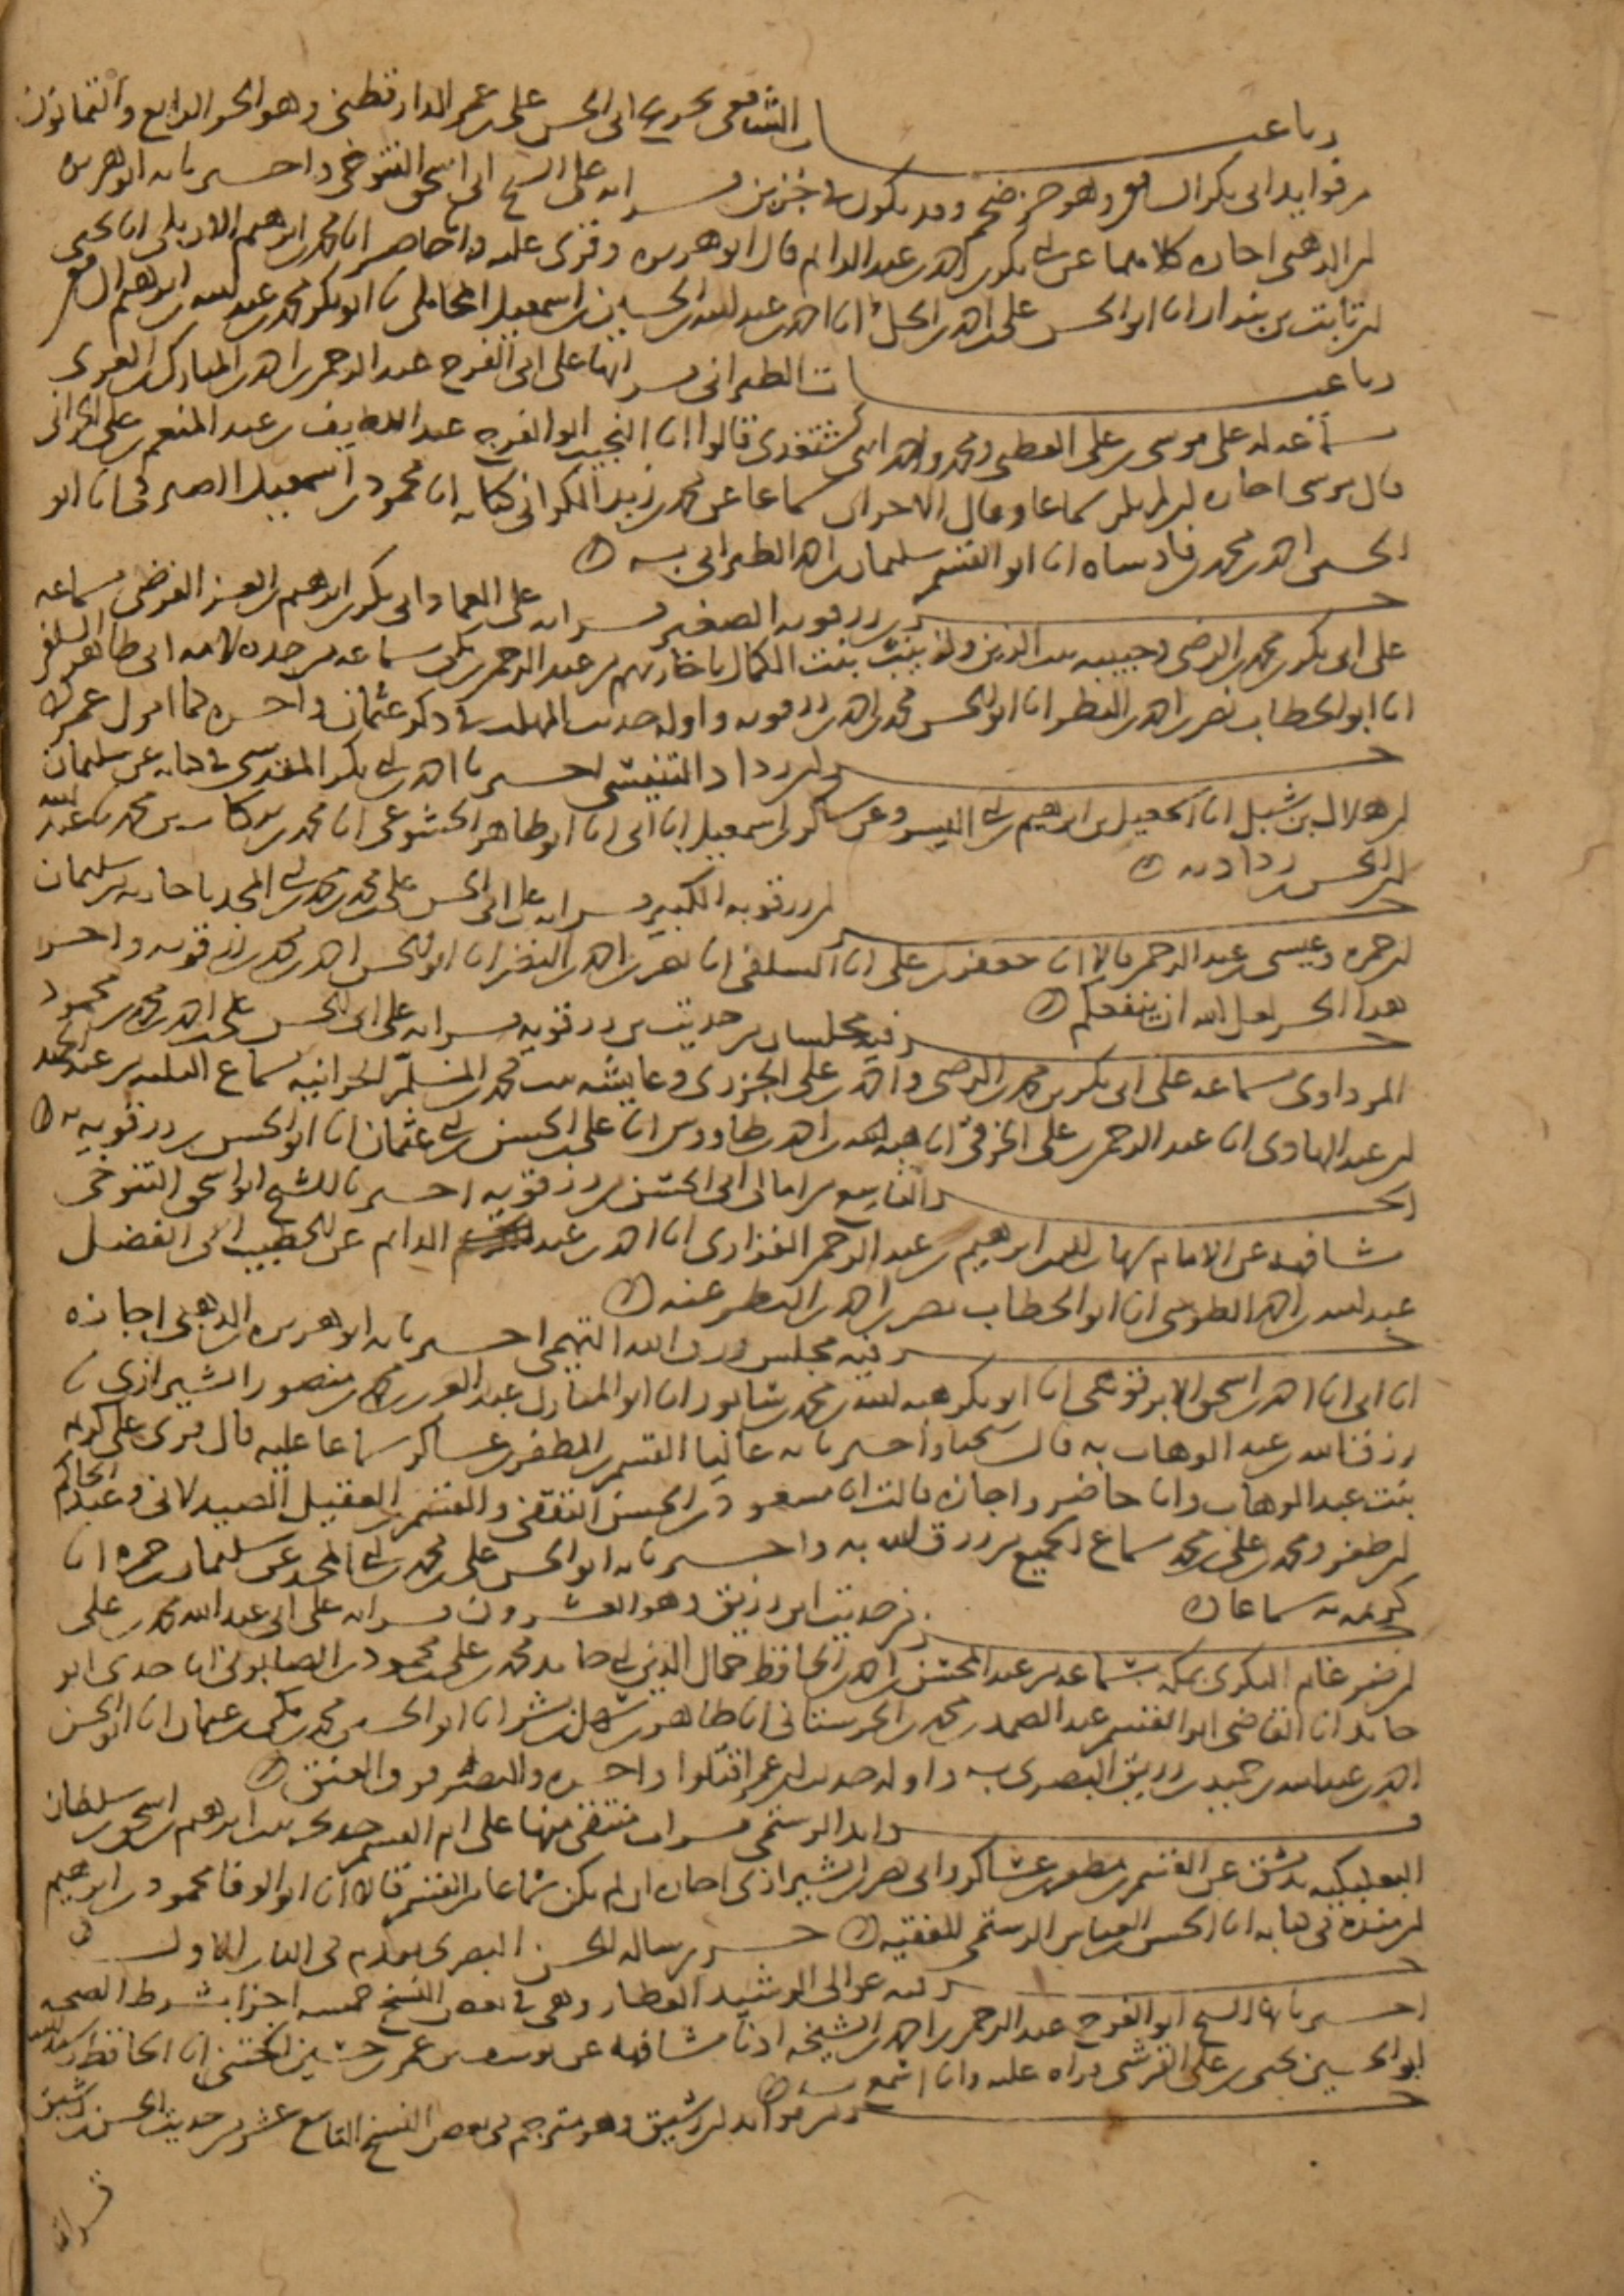 رباعيات الشافعي تخريج ابى الحسن على بن عمر الدارقطنى وهو الجزء الرابع والثمانون
من فوايد ابى بكر الشافعى وهو جزء ضخم وقد يكون فى جزين قراته على الشيخ ابى اسحق التنوخى واخبرنا به ابو هريرة
بن الذهبى اجازه كلاهما عن ابى بكر بن احمد بن عبد الدايم قال ابو هريرة وقرى عليه وانا حاضر انا محمد بن ابرهيم الاربلى انا يحيى
بن ثابت بن بندار انا ابو الحسن على بن احمد بن الخل انا احمد بن عبد الله بن الحسين بن اسمعيل المحاملى نا ابو بكر محمد بن عبد الله بن ابرهيم الشافعى
رباعيات الطبرانى قراتها على ابى الفرج عبد الرحمن بن احمد بن المبارك الغزى
بسماعه له على موسى بن على القطبى ومحمد واحمد ابنى كشتغدى قالوا انا النجيب ابو الفرج عبد اللطيف بن عبد المنعم بن على الحرانى
قال موسى اجازه ان لم يكن سماعا وقال الاخران سماعا عن محمد بن زيد الكرانى كتابة انا محمود بن اسمعيل الصيرفى انا ابو
الحسين احمد بن محمد بن فادشاه انا ابو القسم سليمان بن احمد الطبرانى به
جزء بن رزقويه الصغير قراته على العماد ابى بكر بن ابرهيم بن العز الفرضى بسماعه
على ابى بكر بن محمد بن الرضى وحبيبه بنت الزين وزينب بنت الكمال باجازتهم من عبد الرحمن بن مكى بسماعه من جده لامه ابى طاهر السلفى
انا ابو الخطاب نصر بن احمد بن البطر انا ابو الحسن محمد بن احمد بن رزقويه واوله حديث المهلب فى ذكر عثمان واخره
جزء بن رداد التنيسى اخبرنا احمد بن ابى بكر المقدسى فى كتابه عن سليمان
بن هلال بن شبل انا اسمعيل بن ابرهيم بن ابى اليسر وعن بن عساكر بن اسمعيل انا ابى انا ابو طاهر الخشوعى انا محمد بن بركات بن محمد نا عبد الله
بن الحسن بن رداد به
جزء بن رزقويه الكبير قراته على ابى الحسن على بن محمد بن محمد بن ابى المجد باجازته من سليمان
بن حمزه وعيسى بن عبد الرحمن قالا انا جعفر بن على انا السلفى انا نصر بن احمد بن البطر انا ابو الحسن احمد بن محمد بن رزقويه واخر
هذا الجزء لعل الله ان ينفعكم
جزء فيه مجلسان من حديث بن رزقويه قراته على ابى الحسن على بن احمد بن محمد بن محمود
المرداوى بسماعه على ابى بكر بن محمد بن الرضى واحمد بن على الجزرى وعايشه بنت محمد بن المسلم الحرانيه بسماع الثلثه من عبد الحميد
بن عبد الهادى انا عبد الرحمن بن على الخرقى انا هبة الله بن احمد بن طاووس انا على بن الحسن بن ابى عثمان انا ابو الحسن بن رزقويه به
الجزء التاسع من امالى ابى الحسن بن رزقويه اخبرنا الشيخ ابو اسحق التنوخى
مشافهة عن الامام برهان الدين ابرهيم بن عبد الرحمن الفزارى انا احمد بن عبد الدايم عن الخطيب ابى الفضل
عبد الله بن احمد الطوسى انا ابو الخطاب نصر بن احمد بن البطر عنه
جزء فيه مجلس رزق الله التميمى اخبرنا به ابو هريره بن الذهبى اجازه
انا ابى انا احمد بن اسحق الابرقوهى انا ابو بكر عبد الله بن محمد بن سابور انا ابو المبارك عبد العزيز بن محمد بن منصور الشيرازى نا
رزق الله بن عبد الوهاب به قال شيخنا واخبرنا به عاليا القسم بن المظفر بن عساكر سماعا عليه قال قرى على كريمه
بنت عبد الوهاب وانا حاضر واجازه قالت انا مسعود بن الحسن الثقفى والقسم بن الفضل الصيدلانى وعبد الحاكم
بن ظفر ومحمد بن على بن محمد بسماع الجميع من رزق الله به واخبرنا به ابو الحسن على بن محمد بن ابى المجد عن سليمان بن حمزه انا
كريمه به سماعا
جزء من حديث ابن رزيق وهو العشرون قراته على ابى عبد الله محمد بن على
بن ضرغام البكرى بمكه بسماعه من عبد المحسن بن احمد بن الحافظ جمال الدين ابى حامد محمد بن على بن محمود بن الصابونى انا جدى ابو
حامد انا القاضى ابو القسم عبد الصمد بن محمد بن الحرستانى انا طاهر بن سهل بن بشر انا ابو الحسين محمد بن مكى بن عثمان انا ابو الحسن
احمد بن عبد الله بن حميد بن رزيق البصرى به واوله حديث بن عمر اقتلوا واخره والبصر فوق العنق
فوايد الرستمى قرات منتقى منها على ام القسم خديجه بنت ابرهيم بن اسحق بن سلطان
البعلبكيه بدمشق عن القسم بن مظفر بن عساكر وابى نصر بن الشيرازى اجازه ان لم يكن سماعا من القسم قالا انا ابو الوفا محمود بن ابرهيم
بن منده فى كتابه انا الحسن بن العباس الرستمى الفقيه جزء من رساله الحسن البصرى تقدم فى الباب الاول
جزء فيه عوالى الرشيد العطار وهى فى بعض النسخ خمسه اجزا بشرط الصحه
اخبرنا بها الشيخ ابو الفرج عبد الرحمن بن احمد بن الشيخه اذنا مشافهة عن يوسف بن عمر بن حسين الختنى انا الحافظ رشيد الدين
ابو الحسين يحيى بن على القرشى قراه عليه وانا اسمع
جزء من فوايد بن رشيق وهو مترجم فى بعض النسخ التاسع عشر من حديث الحسن بن رشيق
قراته